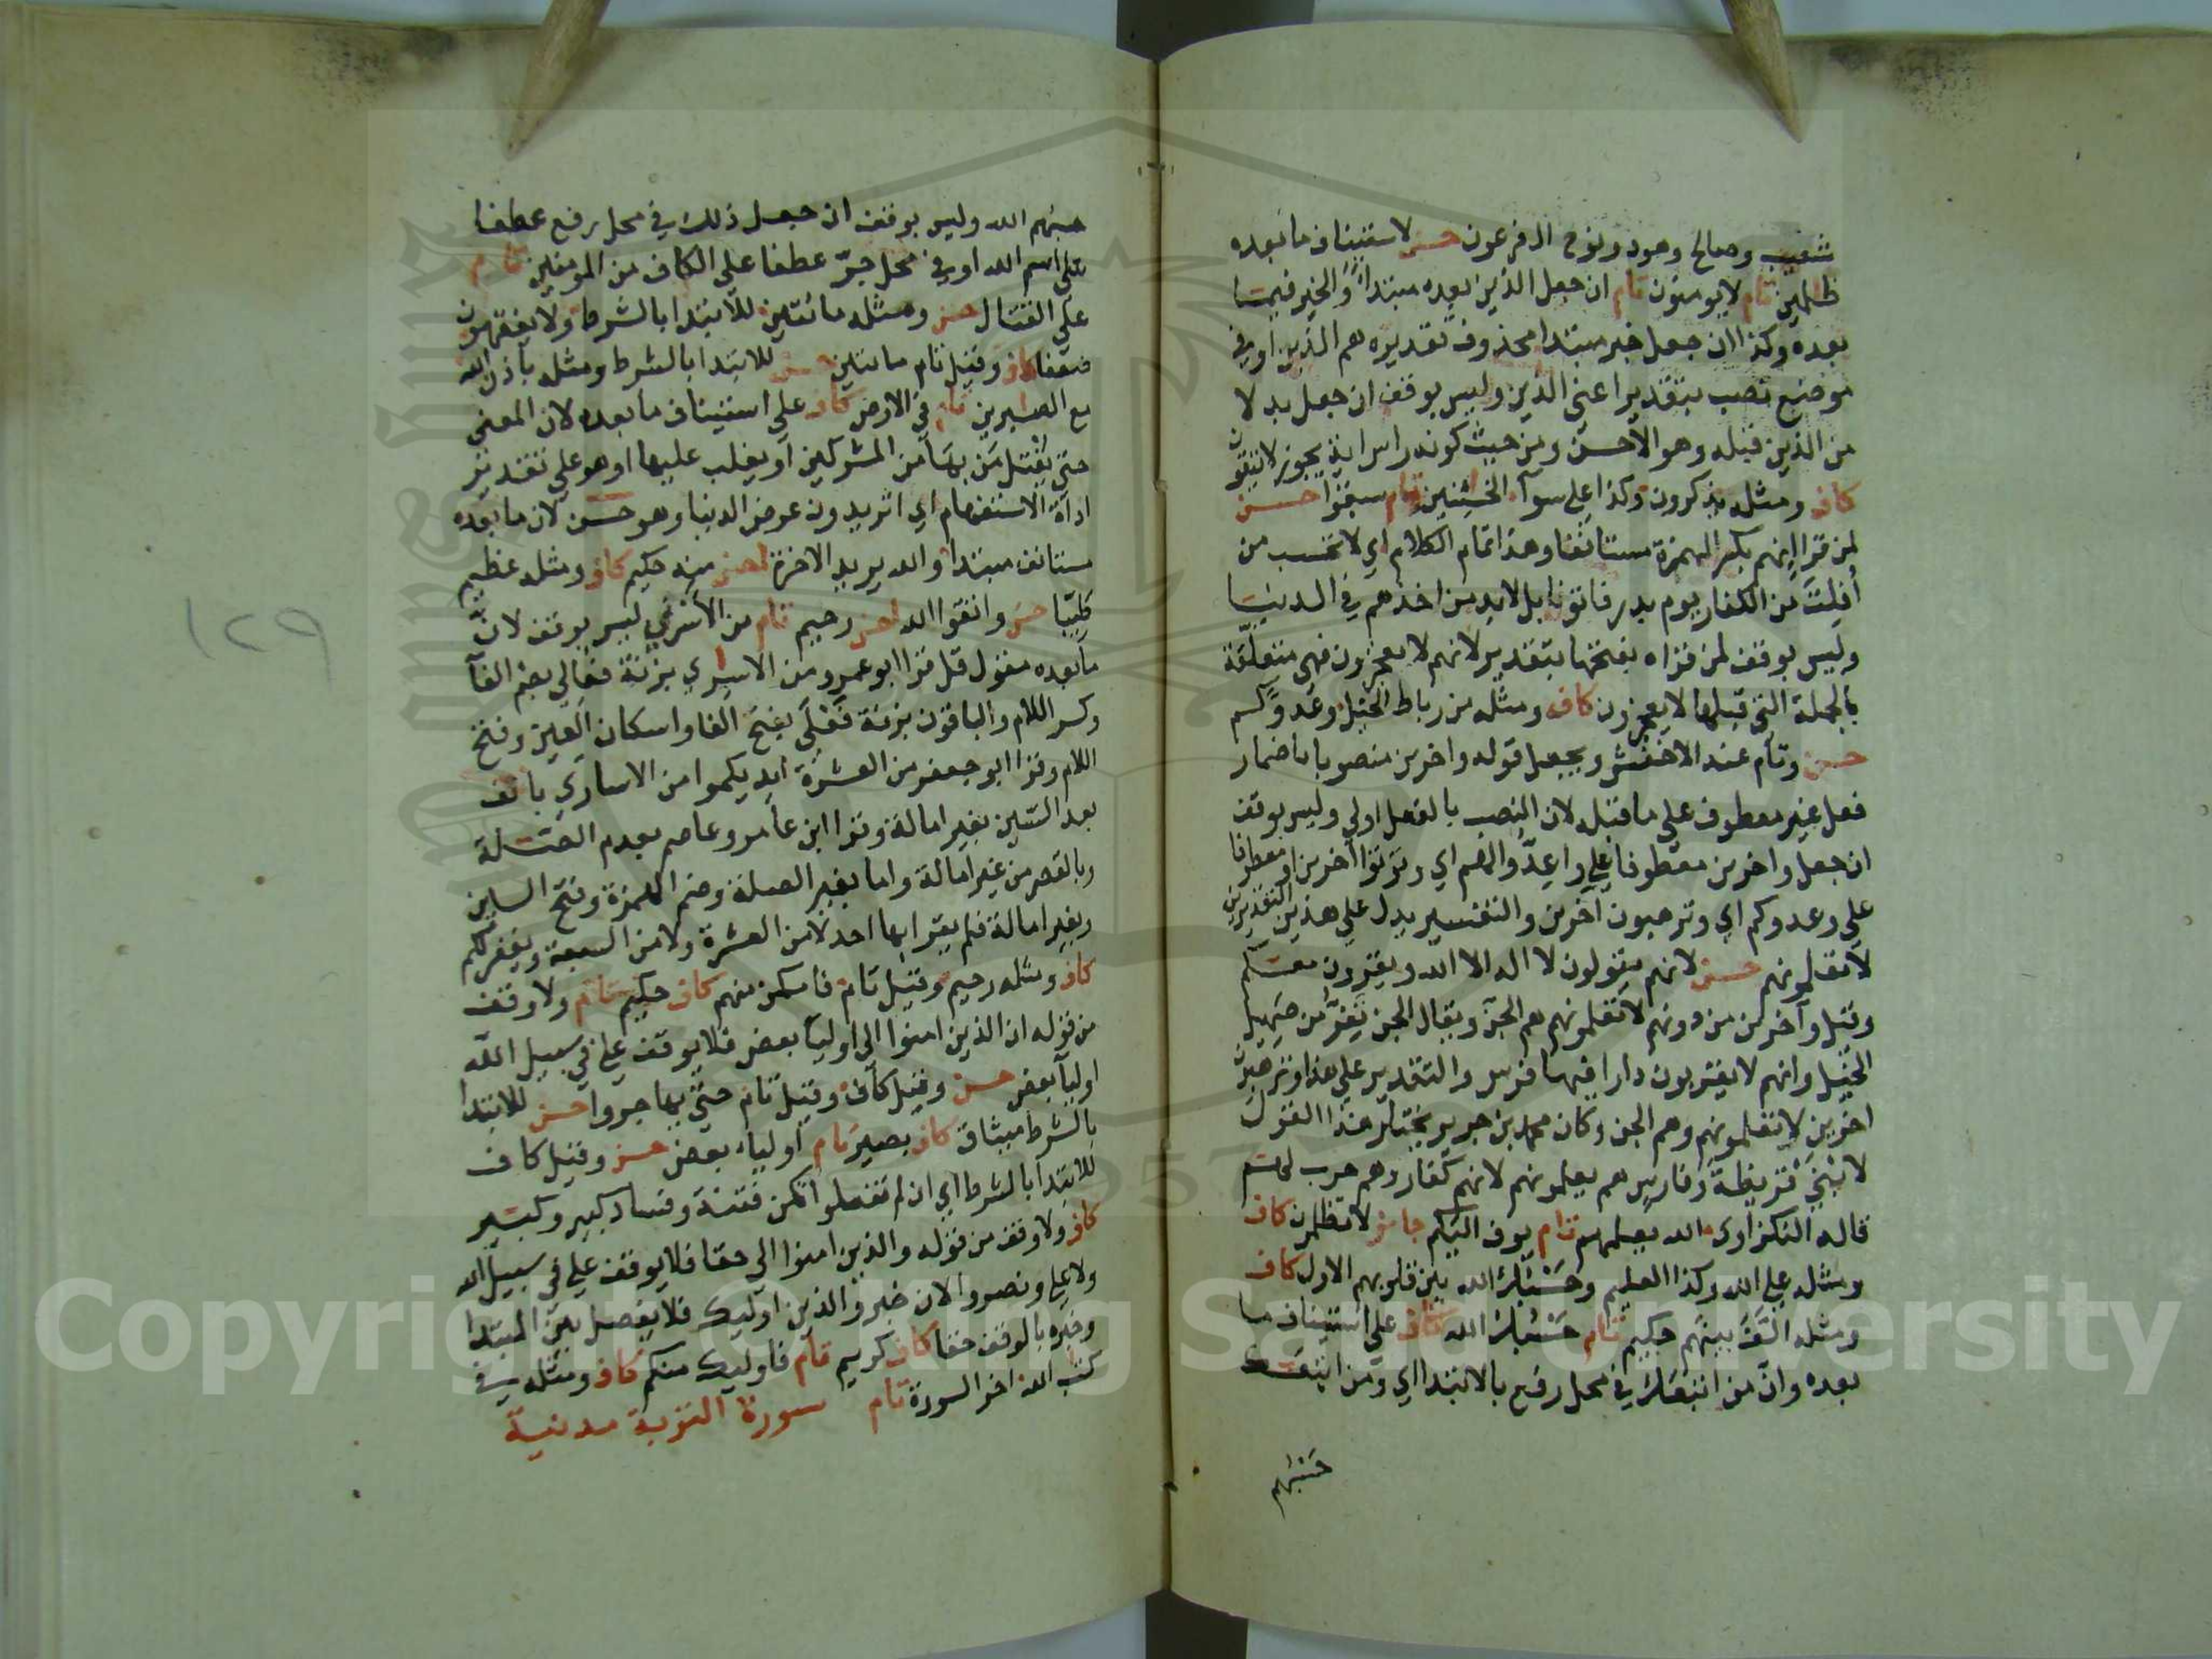 شعيب وصالح وهود ونوح ال فرعون حسن لاستيناف ما بعده
ظلمين تام لا يومنون تام ان جعل الذين بعده مبتدا والخبر فيما
بعده وكذا ان جعل خبر مبتدا محذوف تقديره هم الذين او في
موضع نصب بتقدير اعني الذين وليس بوقف ان جعل بدلا
من الذين قبله وهو الاحسن ومن حيث كونه راس اية يجوز لا يتقون
كاف ومثله يذكرون وكذا على سوآء الخئنين تام سبقوا حسن
لمن قرا انهم بكسر الهمزة مستانفا وهذا تمام الكلام اي لا تحسب من
أفلت من الكفار يوم بدر فاتونا بل لا بد من اخذهم في الدنيا
وليس بوقف لمن قراه بفتحها بتقدير لانهم لا يعجزون فهي متعلقة
بالجملة التي قبلها لا يعجزون كاف ومثله من رباط الخيل وعدوكم
حسن وتام عند الاخفش ويجعل قوله واخرين منصوبا باضمار
فعل غير معطوف على ما قبله لان النصب بالفعل اولى وليس بوقف
ان جعل واخرين معطوفا على واعدوا لهم اي وتوتوا اخرين او معطوفا
على وعدوكم اي وترهبون آخرين والتفسير يدل على هذين التقديرين
لا تعلمونهم حسن لانهم يقولون لا اله الا الله ويغزون معكم
وقيل وآخرين من دونهم لا تعلمونهم هم الجن ويقال الجن تفر من صهيل
الخيل وانهم لا يقربون دارا فيها فرس والتقدير على هذا وترهبون
اخرين لا تعلمونهم وهم الجن وكان محمد بن جرير يختار هذا القول
لا بني قريظة وفارس هم يعلمونهم لانهم كفار وهم حرب لهم
قاله النكزاوى الله يعلمهم تام يوف اليكم جائز لا تظلمون كاف
ومثله على الله وكذا العليم وحسبك الله بين قلوبهم الاول كاف
ومثله الف بينهم حكيم تام حسبك الله كاف على استيناف ما
بعده وان من اتبعك في محل رفع بالابتدا اي ومن اتبعك
حسبهم
حسبهم الله وليس بوقف ان جعل ذلك في محل رفع عطفا
على اسم الله او في محل جر عطفا على الكاف من المومنين تام
على القتال حسن ومثله مائتين للابتدا بالشرط ولا يفقهون
ضعفا كاف وقيل تام مايتين حسن للابتدا بالشرط ومثله باذن الله
مع الصبرين تام في الارض كاف على استيناف ما بعده لان المعنى
حتى يقتل من بها من المشركين او يغلب عليها او هو على تقدير
اداة الاستفهام اي اتريدون عرض الدنيا وهو حسن لان ما بعده
مستانف مبتدا والله يريد الاخرة احسن منه حكيم كاف ومثله عظيم
طيبا حسن واتقوا الله احسن رحيم تام من الاسرى ليس بوقف لان
ما بعده مقول قل قرا ابو عمرو من الاسرى بزنة فعالى بضم الفآ
وكسر اللام والباقون بزنة فعلى بفتح الفا واسكان العين وفتح
اللام وقرا ابو جعفر من العشرة ايديكموا من الاسارى بالف
بعد السين بغير امالة وقرا ابن عامر وعاصم بعدم الصلة
وبالقصر من غير امالة واما بغير الصلة وضم الهمزة وفتح السين
وبغير امالة فلم يقرا بها احد لا من العشرة ولا من السبعة ويغفر لكم
كاف ومثله رحيم وقيل تام فامكن منهم كاف حكيم تام ولا وقف
من قوله ان الذين امنوا الى اوليآ بعض فلا يوقف على في سبيل الله
اوليآ بعض حسن وقيل كاف وقيل تام حتى يهاجروا حسن للابتدا
بالشرط ميثاق كاف بصير تام اولياء بعض حسن وقيل كاف
للابتدا بالشرط اي ان لم تفعلوا تكن فتنة وفساد كبير وكبير
كاف ولا وقف من قوله والذين امنوا الى حقا فلا يوقف على في سبيل الله
ولا على ونصروا لان خبر والذين اوليك فلا يفصل بين المبتدا
وخبره بالوقف حقا كاف كريم تام فاوليك منكم كاف ومثله في
كتب الله اخر السورة تام سورة التوبة مدنية
١٢٩
Copyright © King Saud University
1957